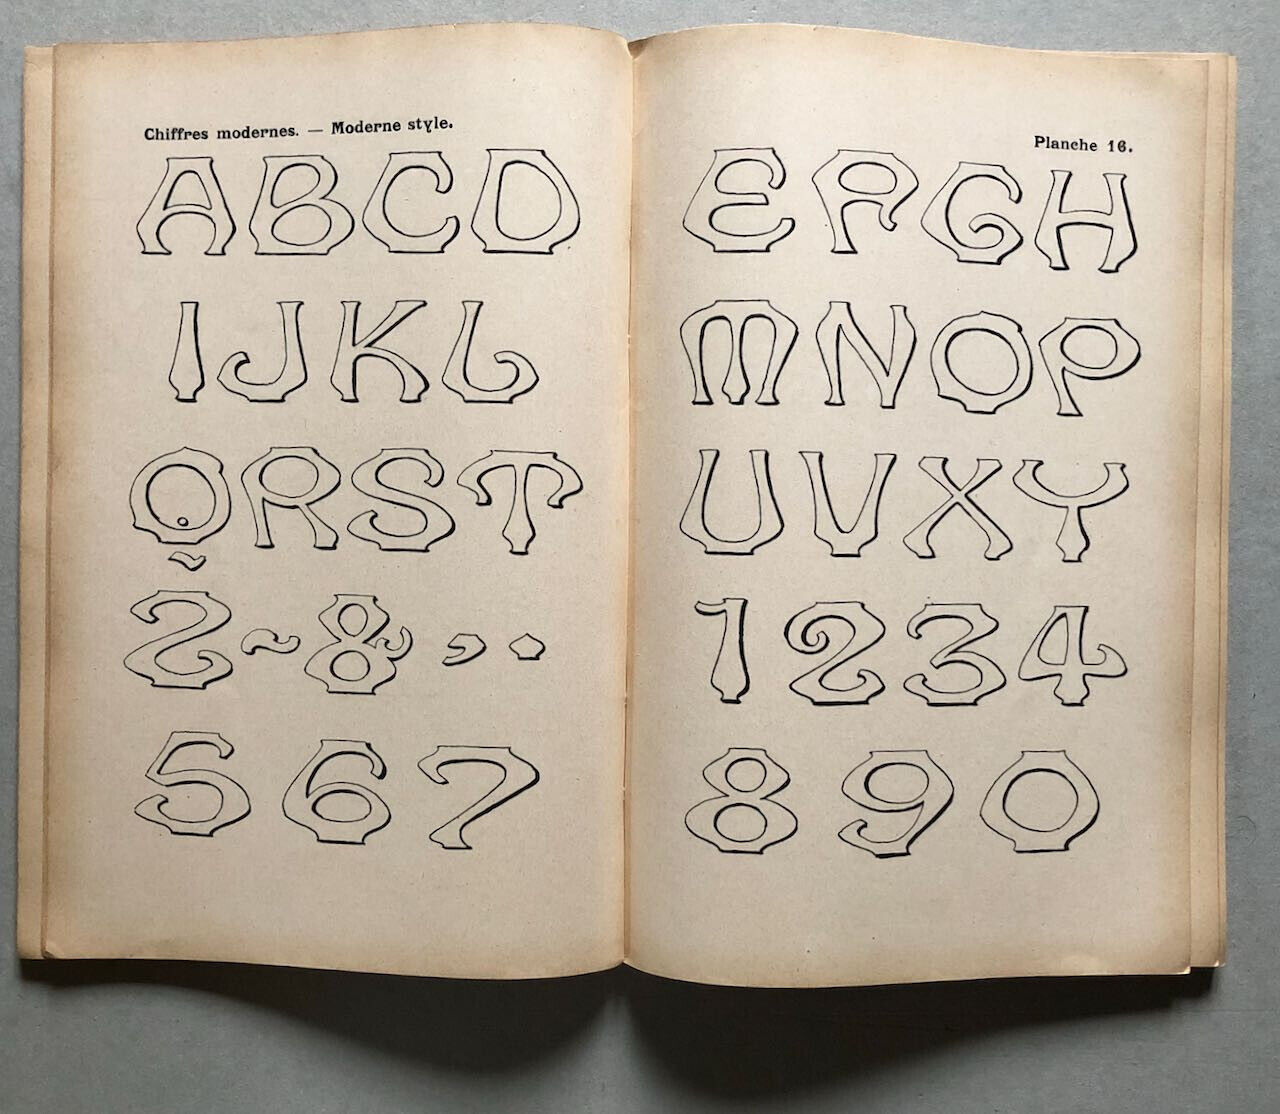 Chiffres modernes. — Moderne style.
Planche 16.
A B C D E F G H
I J K L M N O P
Q R S T U V X Y
Z - & , . 1 2 3 4
5 6 7 8 9 0